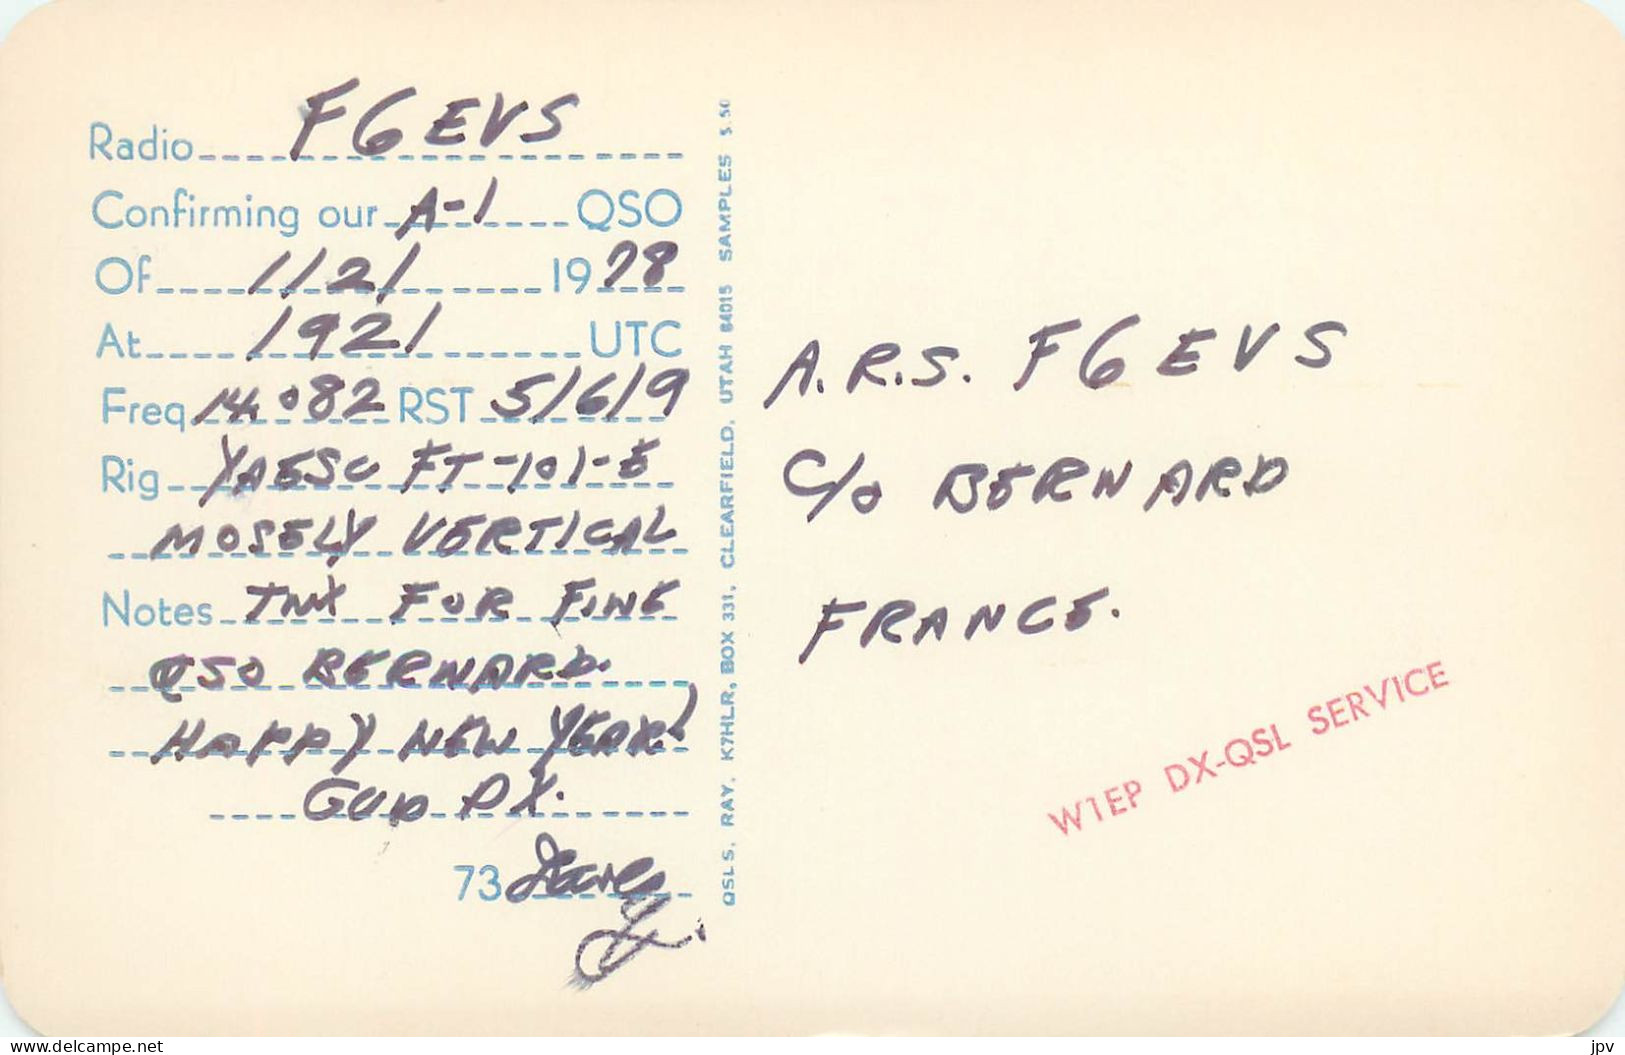 Radio F6EVS
Confirming our A-1 QSO
Of 1/21 1978
At 1921 UTC
Freq 14.082 RST 5/6/9
Rig YAESU FT-101-E
MOSELY VERTICAL
Notes TNX FOR FINE
QSO BERNARD.
HAPPY NEW YEAR!
GUD DX.
73
QSLS, RAY, K7HLR, BOX 331, CLEARFIELD, UTAH 84015 SAMPLES $.50
A.R.S. F6EVS
C/O BERNARD
FRANCE.
W1EP DX-QSL SERVICE
www.delcampe.net
jpv